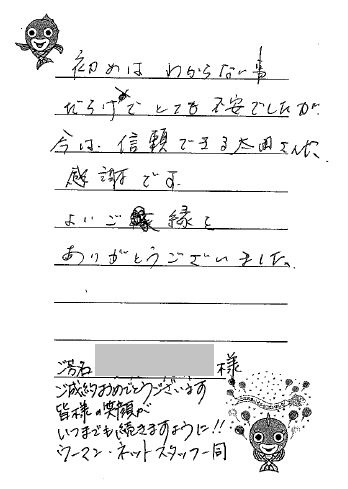 初めは わからない事
だらけで とても 不安でしたが
今は、信頼できる太田さんに
感謝です。
よいご縁を
ありがとうございました。
ご芳名 様
ご成約おめでとうございます
皆様の笑顔が
いつまでも続きますように!!
ウーマン・ネットスタッフ一同